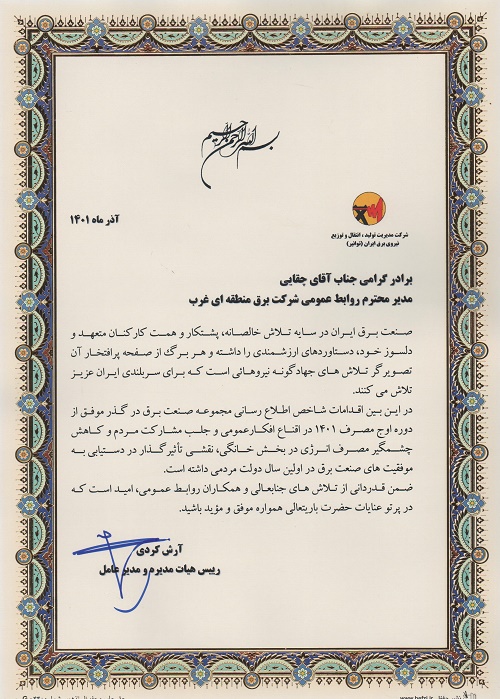 بسم الله الرحمن الرحیم
آذر ماه ۱۴۰۱
شرکت مدیریت تولید، انتقال و توزیع
نیروی برق ایران (توانیر)
برادر گرامی جناب آقای چقایی
مدیر محترم روابط عمومی شرکت برق منطقه ای غرب
صنعت برق ایران در سایه تلاش خالصانه، پشتکار و همت کارکنان متعهد و
دلسوز خود، دستاوردهای ارزشمندی را داشته و هر برگ از صفحه پرافتخار آن
تصویرگر تلاش های جهادگونه نیروهائی است که برای سربلندی ایران عزیز
تلاش می کنند.
در این بین اقدامات شاخص اطلاع رسانی مجموعه صنعت برق در گذر موفق از
دوره اوج مصرف ۱۴۰۱ در اقناع افکارعمومی و جلب مشارکت مردم و کاهش
چشمگیر مصرف انرژی در بخش خانگی، نقشی تأثیرگذار در دستیابی به
موفقیت های صنعت برق در اولین سال دولت مردمی داشته است.
ضمن قدردانی از تلاش های جنابعالی و همکاران روابط عمومی، امید است که
در پرتو عنایات حضرت باریتعالی همواره موفق و مؤید باشید.
آرش کردی
رییس هیات مدیره و مدیر عامل